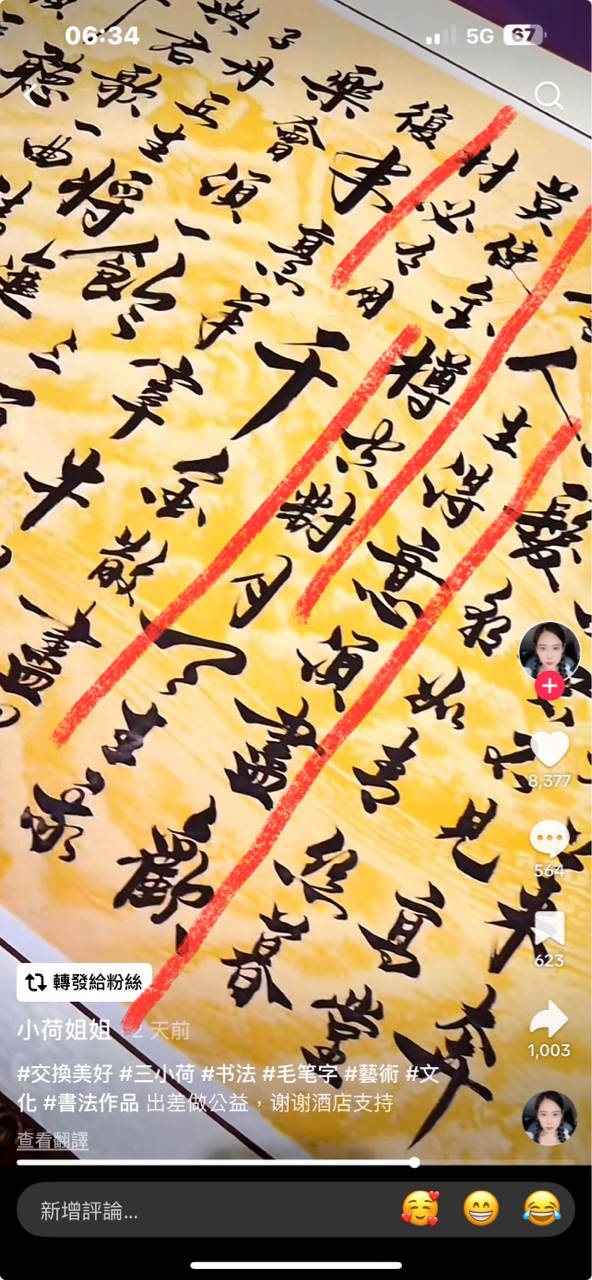 06:34
5G
67
來奔
見高堂
髮朝如青絲暮
人生得意須盡歡
莫使金樽空對月天生我
材必有用千金散盡
復來烹羊宰牛
樂會須一飲三
子丹丘生將進
與君歌一曲
聽
8,377
564
623
1,003
轉發給粉絲
小荷姐姐 · 2 天前
#交換美好 #三小荷 #书法 #毛笔字 #藝術 #文
化 #書法作品 出差做公益，谢谢酒店支持
查看翻譯
新增評論...